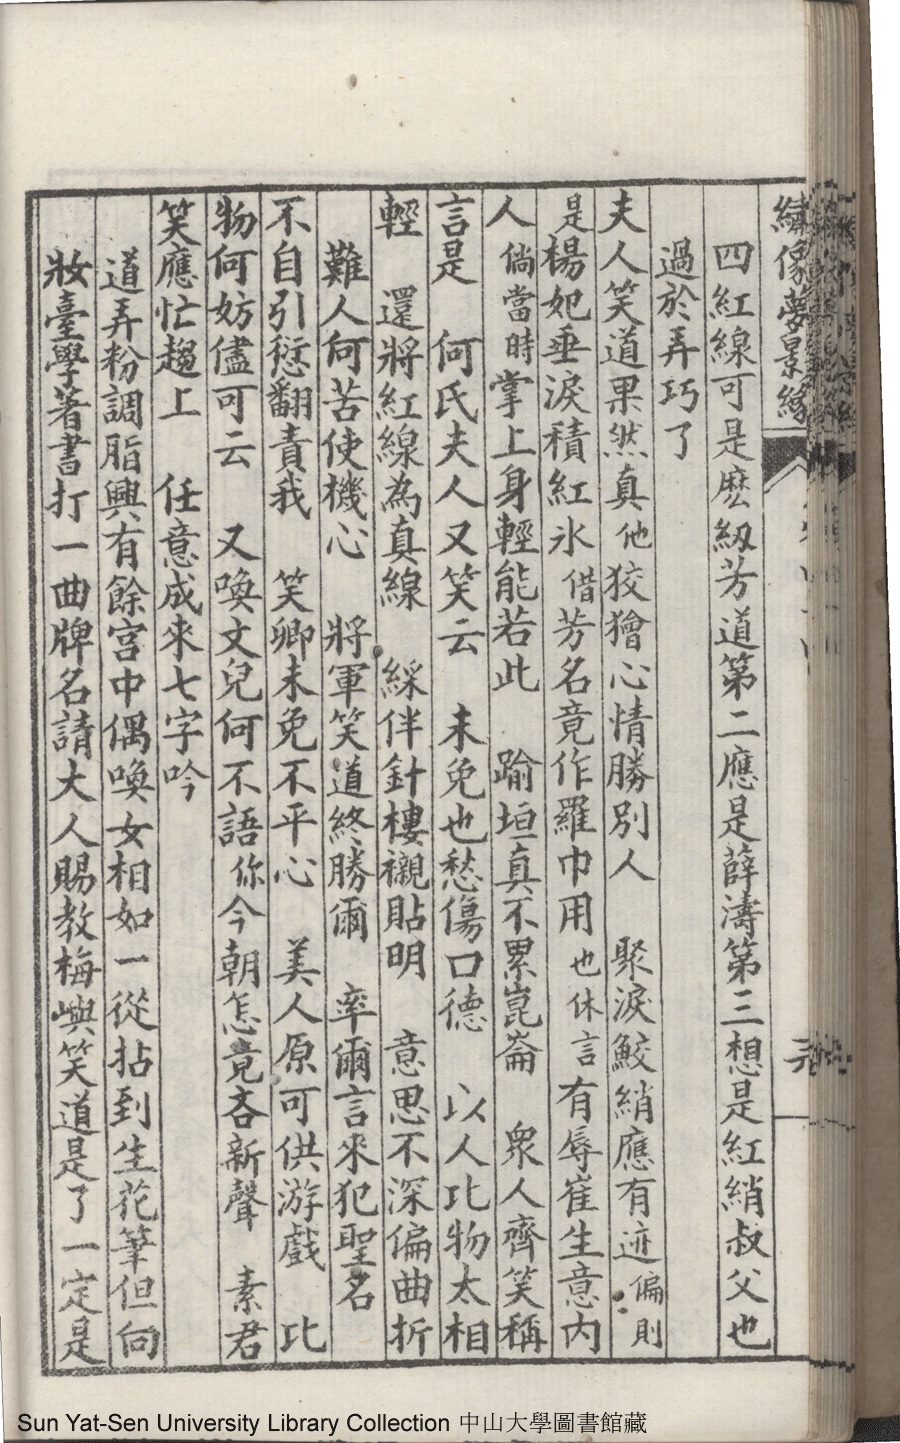 繡像夢景緣
四紅線可是麽紉芳道第二應是薛濤第三想是紅綃叔父也
過於弄巧了
夫人笑道果然真他狡獪心情勝別人 聚淚鮫綃應有迹偏則
是楊妃垂淚積紅氷 借芳名竟作羅巾用也休言有辱崔生意內
人 倘當時掌上身輕能若此 踰垣真不累崑崙 眾人齊笑稱
言是 何氏夫人又笑云 未免也愁傷口德 以人比物太相
輕 還將紅線為真線 綵伴針樓襯貼明 意思不深偏曲折
難人何苦使機心 將軍笑道終勝爾 率爾言來犯聖名
不自引愆翻責我 笑卿未免不平心 美人原可供游戲 比
物何妨儘可云 又喚文兒何不語你今朝怎竟吝新聲 素君
笑應忙趨上 任意成來七字吟
道弄粉調脂興有餘宮中偶喚女相如一從拈到生花筆但向
妝臺學著書打一曲牌名請大人賜教梅嶼笑道是了一定是
Sun Yat-Sen University Library Collection 中山大學圖書館藏